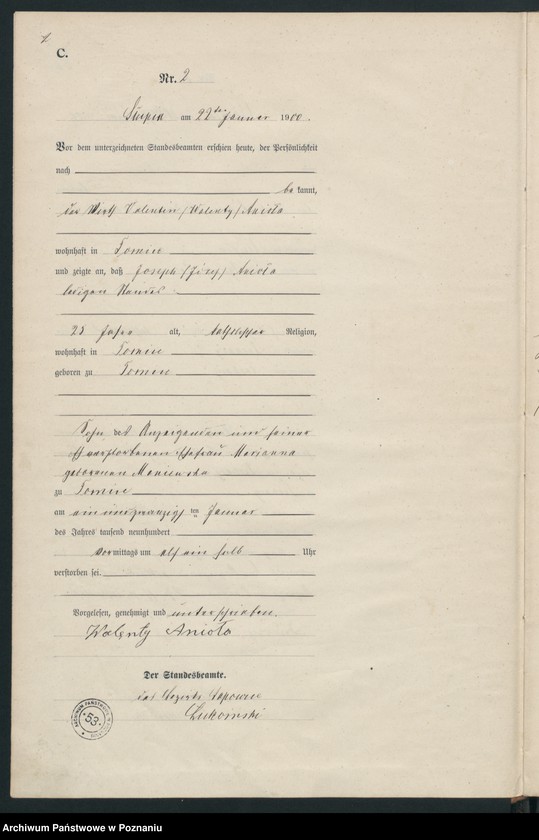 C.
Nr. 2
am 22ten Januar 1900.
Vor dem unterzeichneten Standesbeamten erschien heute, der Persönlichkeit
nach
be kannt,
der Wirth Valentin /Walenty/ Anioła
wohnhaft in Tomice
und zeigte an, daß Joseph /Józef/ Anioła
ledigen Standes
23 Jahre alt, katholischer Religion,
wohnhaft in Tomice
geboren zu Tomice
Sohn des Anzeigenden und seiner
verstorbenen Ehefrau Marianna
geborenen
zu Tomice
am ein und zwanzigsten Januar
des Jahres tausend neunhundert
vormittags um elf ein halb Uhr
verstorben sei.
Vorgelesen, genehmigt und unterschrieben.
Walenty Anioła
Der Standesbeamte.
des Bezirks
ARCHIWUM PAŃSTWOWE
53
Archiwum Państwowe w Poznaniu